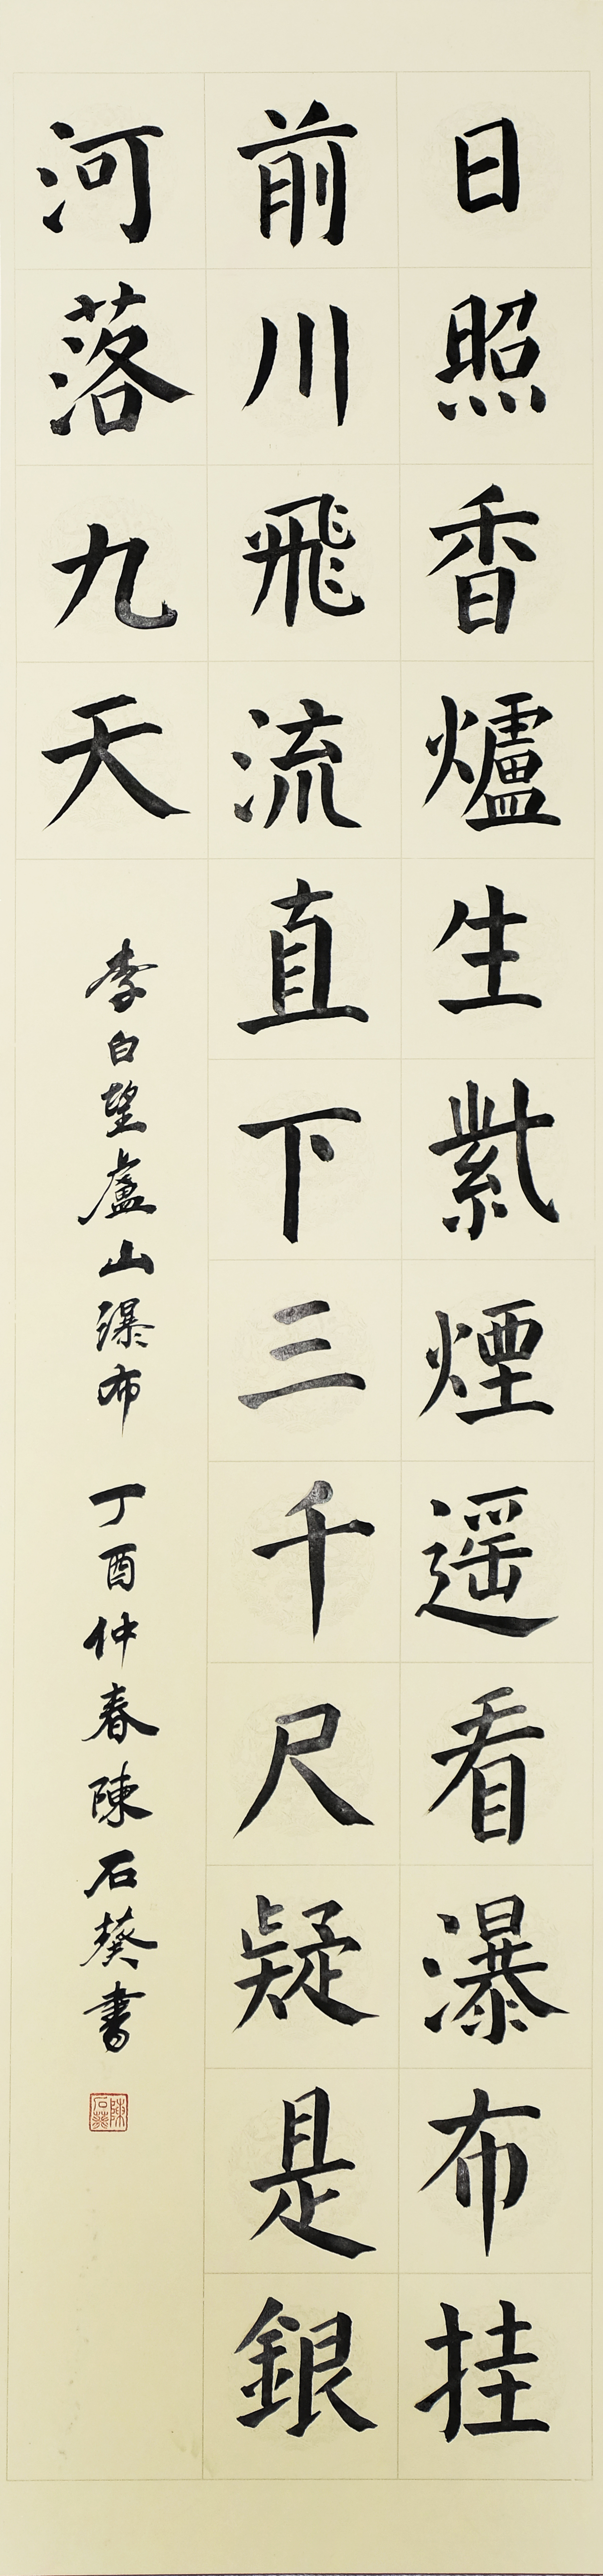 日照香爐生紫煙遥看瀑布挂
前川飛流直下三千尺疑是銀
河落九天
李白望廬山瀑布 丁酉仲春陳石葵書
陳石葵